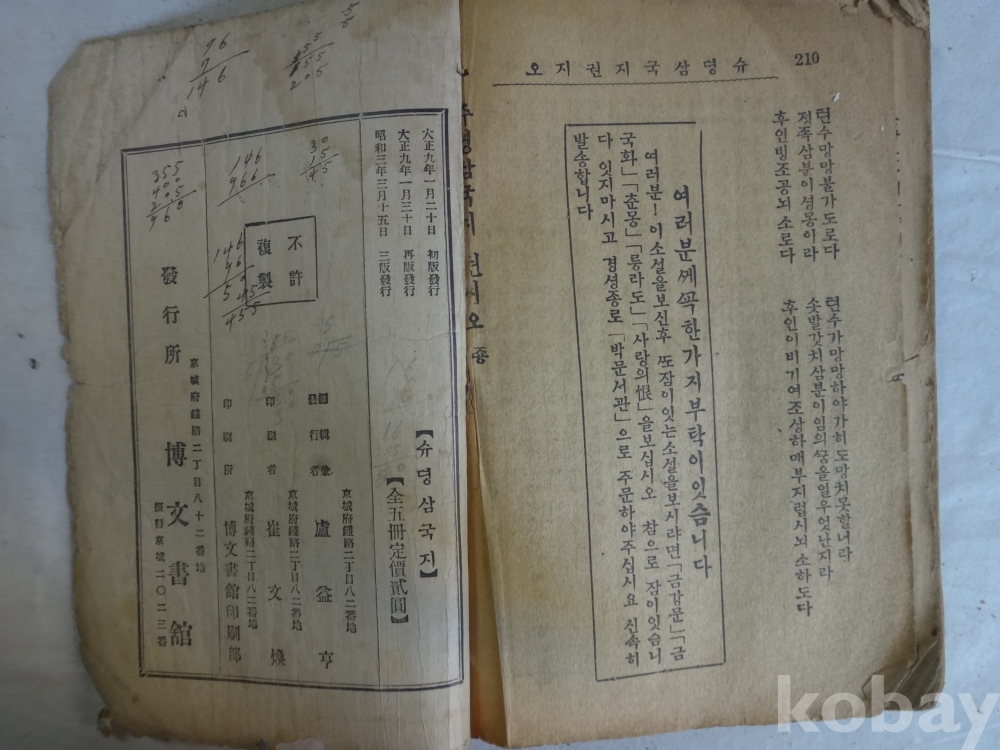 210
슈뎡삼국지권지오
텬수망망불가도로다
졍족삼분이셩몽이라
후인빙조공뇌소로다
텬수가망망하야가히도망치못할니라
솟발갓치삼분이임의꿈을일우엇난지라
후인이비기여조상하매부지럽시뇌소하도다
여러분께꼭한가지부탁이잇슴니다
여러분ー이소설을보신후 또잠이잇는소설을보시랴면「금강문」「금
국화」「춘몽」「릉라도」「사랑의恨」을보십시오 참으로 잠이잇슴니
다 잇지마시고 경셩종로「박문서관」으로 주문하야주십시요 신속히
발송합니다
大正九年一月二十日 初版發行
大正九年一月三十日 再版發行
昭和三年三月十五日 三版發行
【슈뎡삼국지】
【全五冊定價貳圓】
不許
複製
京城府鍾路二丁目八二番地
編輯兼
發行者 盧益亨
京城府鍾路二丁目八二番地
印刷者 崔文煥
京城府鍾路二丁目八二番地
印刷所 博文書館印刷部
京城府鍾路二丁目八十二番地
發行所 博文書館
振替京城二〇二三番
kobay